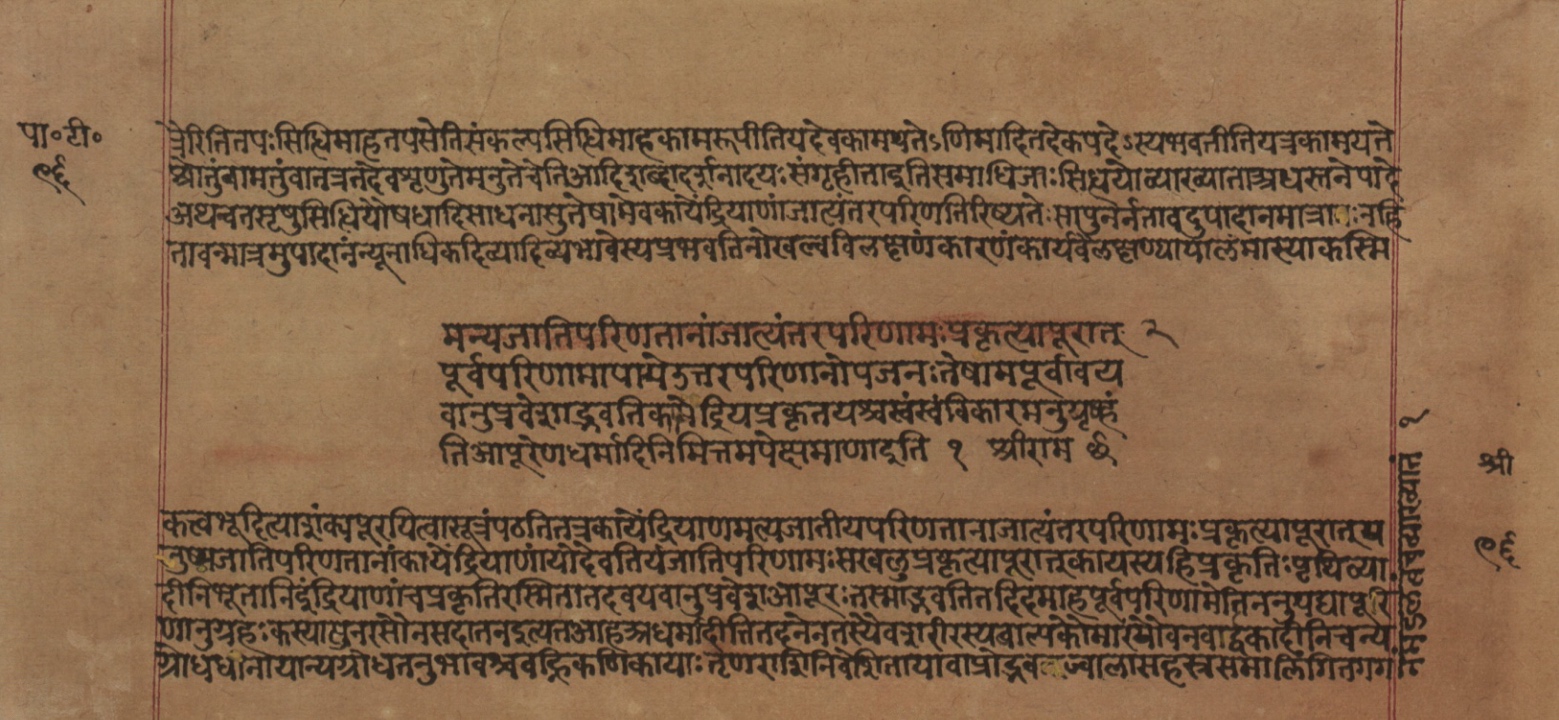 पा॰टी॰
९६
त्रेरितितपःसिद्धिमाहतपसेतिसंकल्पसिद्धिमाहकामरूपीतियदेवकामयतेऽणिमादितदेकपदेऽस्यभवतीतियत्रकामयते
श्रोतुंवामन्तुंवातत्रतदेवशृणुतेमनुतेचेतिआदिशब्दाद्दर्शनादयःसंगृहीताइतिसमाधिजाःसिद्धयोव्याख्याताअधस्तनेपादे
अथचतसृषुसिद्धिष्वौषधादिसाधनासुतेषामेवकायेंद्रियाणांजात्यंतरपरिणतिरिष्यतेःसापुनर्नतावदुपादानमात्रातःनहि
तावन्मात्रमुपादानंन्यूनाधिकदिव्यादिव्यभावेस्यप्रभवतिनोखल्वविलक्षणंकारणंकार्यवैलक्षण्यायालंमास्याकस्मि
मन्यजातिपरिणतानांजात्यंतरपरिणामःप्रकृत्यापूरात् २
पूर्वपरिणामापायेउत्तरपरिणानोपजनःतेषामपूर्वावय
वानुप्रवेशाद्भवतिकायेंद्रियप्रकृतयश्चस्वंस्वंविकारमनुगृण्हं
तिआपूरेणधर्मादिनिमित्तमपेक्षमाणाइति १ श्रीराम
कत्वभूदित्याशंक्यपूरयित्वासूत्रंपठतितत्रकायेंद्रियाणमत्यजातीयपरिणतानाजात्यंतरपरिणामःप्रकृत्यापूरात्म
नुष्यजातिपरिणतानांकायेंद्रियाणांयोदेवतिर्यंजातिपरिणामःसखलुप्रकृत्यापूरात्कायस्यहिप्रकृतिःपृथिव्या
दीनिभूतानिइंद्रियाणांचप्रकृतिरस्मितातदवयवानुप्रवेशआपूरःतस्माद्भवतितदिदमाहपूर्वपरिणामेतिननुयद्यापूरे
णानुग्रहःकस्यात्पुनरसौनसदातनइत्यतआहअधर्मादीतितदनेनतस्यैवशरीरस्यबाल्यकौमारयौवनवार्द्धकादीनिचन्य
ग्रोधधानायान्यग्रोधतनुभावश्चवह्निकणिकायाःतृणराशिनिवेशितायावाप्रोद्भवज्ज्वालासहस्रसमालिंगितगगं
श्री
९६